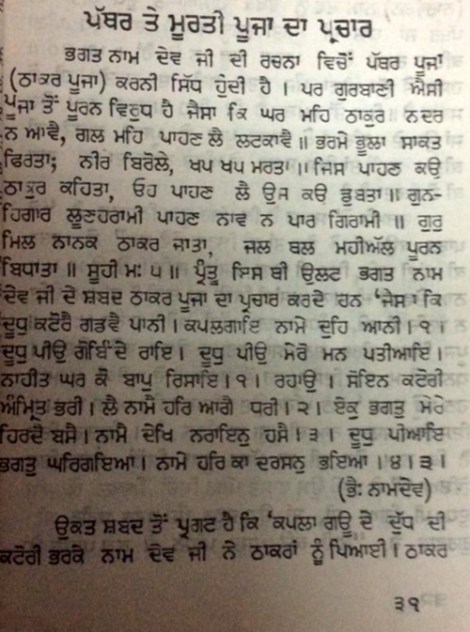 ਪੱਥਰ ਤੇ ਮੂਰਤੀ ਪੂਜਾ ਦਾ ਪ੍ਰਚਾਰ
ਭਗਤ ਨਾਮ ਦੇਵ ਜੀ ਦੀ ਰਚਨਾ ਵਿਚੋਂ ਪੱਥਰ ਪੂਜਾ
(ਠਾਕਰ ਪੂਜਾ) ਕਰਨੀ ਸਿੱਧ ਹੁੰਦੀ ਹੈ । ਪਰ ਗੁਰਬਾਣੀ ਐਸੀ
ਪੂਜਾ ਤੋਂ ਪੂਰਨ ਵਿਰੁਧ ਹੈ ਜੈਸਾ ਕਿ ਘਰ ਮਹਿ ਠਾਕੁਰ ਨਦਰ
ਨ ਆਵੈ, ਗਲ ਮਹਿ ਪਾਹਣ ਲੈ ਲਟਕਾਵੈ ॥ ਭਰਮੇ ਭੂਲਾ ਸਾਕਤ
ਫਿਰਤਾ; ਨੀਰ ਬਿਰੋਲੇ, ਖਪ ਖਪ ਮਰਤਾ ॥ ਜਿਸ ਪਾਹਣ ਕਉ
ਠਾਕੁਰ ਕਹਿਤਾ, ਓਹ ਪਾਹਣ ਲੈ ਉਸ ਕਉ ਡੁਬਤਾ ॥ ਗੁਨ-
ਹਿਗਾਰ ਲੂਣਹਰਾਮੀ ਪਾਹਣ ਨਾਵ ਨ ਪਾਰ ਗਿਰਾਮੀ ॥ ਗੁਰੁ
ਮਿਲ ਨਾਨਕ ਠਾਕਰ ਜਾਤਾ, ਜਲ ਥਲ ਮਹੀਅਲ ਪੂਰਨ
ਬਿਧਾਤਾ ॥ ਸੂਹੀ ਮਃ ੫ ॥ ਪ੍ਰੰਤੂ ਇਸ ਥੀਂ ਉਲਟ ਭਗਤ ਨਾਮ
ਦੇਵ ਜੀ ਦੇ ਸ਼ਬਦ ਠਾਕਰ ਪੂਜਾ ਦਾ ਪ੍ਰਚਾਰ ਕਰਦੇ ਹਨ ‘ਜੈਸਾ ਕਿ
ਦੂਧੁ ਕਟੋਰੈ ਗਡਵੈ ਪਾਨੀ । ਕਪਲਗਾਇ ਨਾਮੇ ਦੁਹਿ ਆਨੀ । ੧ ।
ਦੂਧੁ ਪੀਉ ਗੋਬਿੰਦੇ ਰਾਇ । ਦੂਧੁ ਪੀਉ ਮੇਰੋ ਮਨ ਪਤੀਆਇ ।
ਨਾਹੀਤ ਘਰ ਕੋ ਬਾਪੁ ਰਿਸਾਇ । ੧ । ਰਹਾਉ । ਸੋਇਨ ਕਟੋਰੀ
ਅੰਮ੍ਰਿਤ ਭਰੀ । ਲੈ ਨਾਮੈ ਹਰਿ ਆਗੈ ਧਰੀ । ੨ । ਏਕੁ ਭਗਤੁ ਮੇਰੇ
ਹਿਰਦੈ ਬਸੈ । ਨਾਮੈ ਦੇਖਿ ਨਰਾਇਨੁ ਹਸੈ । ੩ । ਦੂਧੁ ਪੀਆਇ
ਭਗਤੁ ਘਰਿਗਇਆ । ਨਾਮੇ ਹਰਿ ਕਾ ਦਰਸਨੁ ਭਇਆ । ੪ । ੩ ।
(ਭੈ: ਨਾਮਦੇਵ)
ਉਕਤ ਸ਼ਬਦ ਤੋਂ ਪ੍ਰਗਟ ਹੈ ਕਿ ‘ਕਪਲਾ ਗਊ ਦੇ ਦੁੱਧ ਦੀ
ਕਟੋਰੀ ਭਰਕੇ ਨਾਮ ਦੇਵ ਜੀ ਨੇ ਠਾਕਰਾਂ ਨੂੰ ਪਿਆਈ । ਠਾਕਰ
੩੧